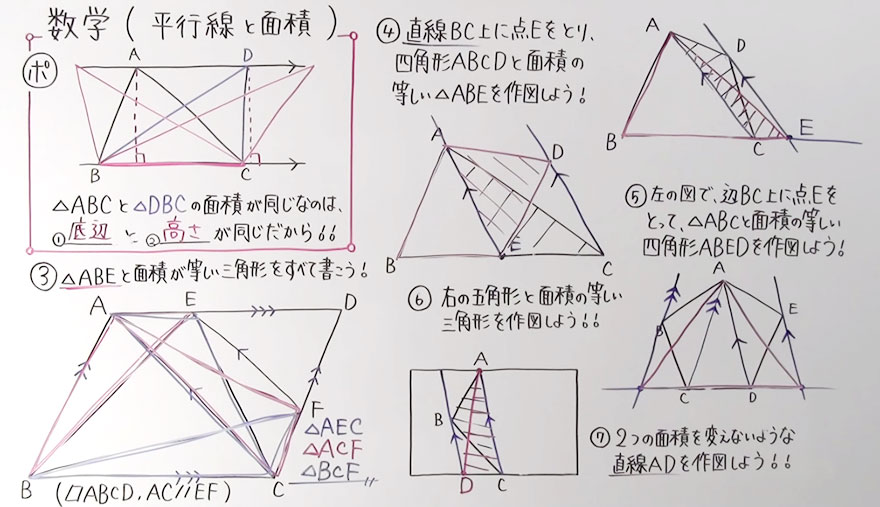 数学（ 平行線と面積 ）
ポ
A D
B C
△ABCと△DBCの面積が同じなのは、
①底辺 と ②高さ が同じだから!!
③ △ABEと面積が等しい三角形をすべて書こう!
A E D
F
△AEC
△ACF
△BCF
B C
(▱ABCD, AC//EF)
④ 直線BC上に点Eをとり、
四角形ABCDと面積の
等しい△ABEを作図しよう!
A
D
B C E
⑤ 左の図で、辺BC上に点Eを
とって、△ABCと面積の等しい
四角形ABEDを作図しよう!
A
D
B E C
⑥ 右の五角形と面積の等しい
三角形を作図しよう!!
A
B E
C D
⑦ 2つの面積を変えないような
直線ADを作図しよう!!
A
B
D C